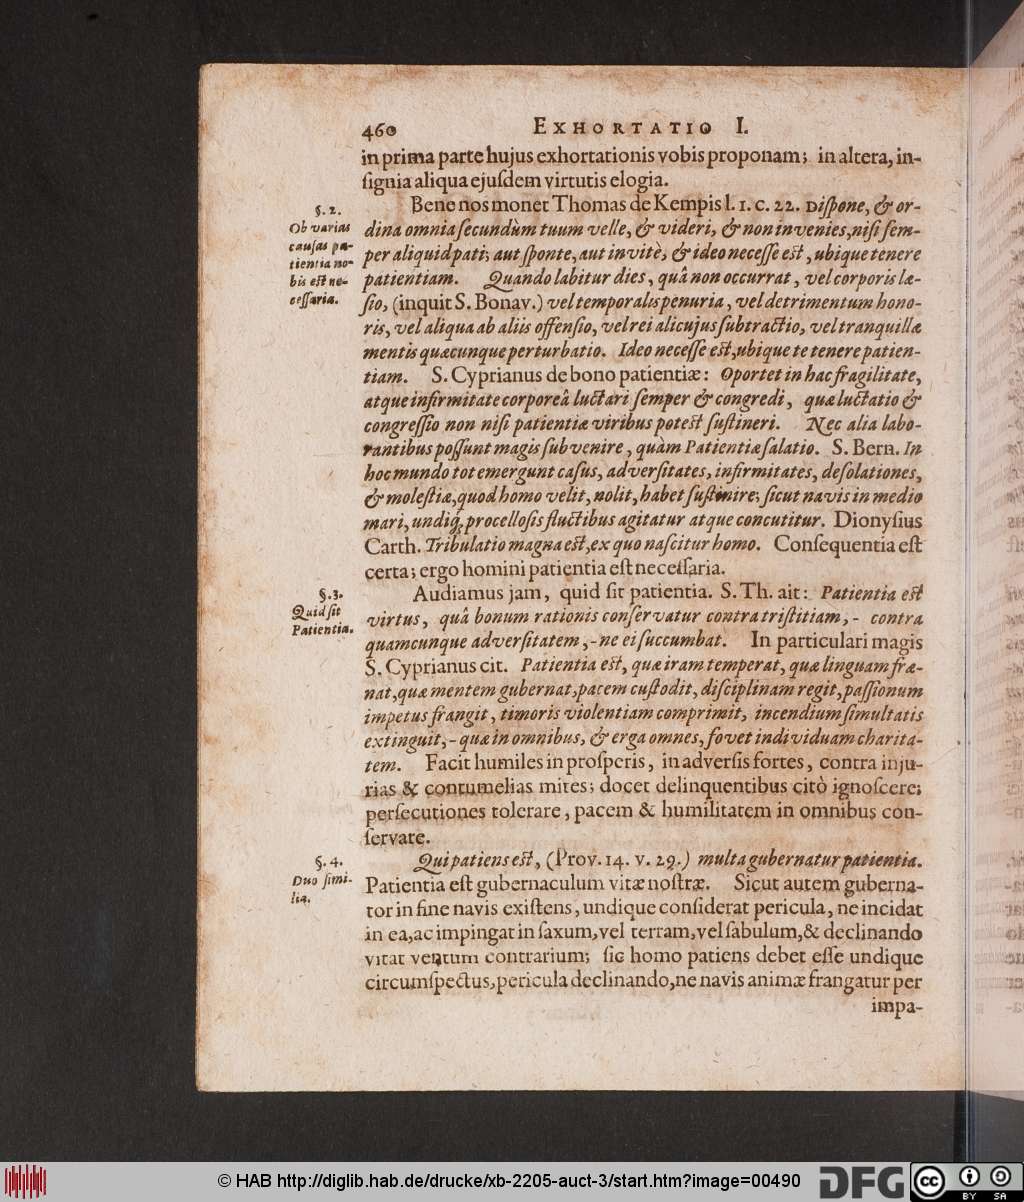 460 EXHORTATIO I.
in prima parte hujus exhortationis vobis proponam; in altera, in-
ſignia aliqua ejuſdem virtutis elogia.
§. 2.
Ob varias
cauſas pa-
tientia no-
bis est ne-
ceſſaria.
Bene nos monet Thomas de Kempis l. 1. c. 22. Diſpone, & or-
dina omnia ſecundùm tuum velle, & videri, & non invenies, niſi ſem-
per aliquid pati; aut ſponte, aut invitè, & ideo neceſſe est, ubique tenere
patientiam. Quando labitur dies, quâ non occurrat, vel corporis læ-
ſio, (inquit S. Bonav.) vel temporalis penuria, vel detrimentum hono-
ris, vel aliqua ab aliis offenſio, vel rei alicujus ſubtractio, vel tranquillæ
mentis quæcunque perturbatio. Ideo neceſſe est, ubique te tenere patien-
tiam. S. Cyprianus de bono patientiæ: Oportet in hac fragilitate,
atque infirmitate corporeâ luctari ſemper & congredi, quæ luctatio &
congreſſio non niſi patientiæ viribus potest ſuſtineri. Nec alia labo-
rantibus poſſunt magis ſubvenire, quàm Patientiæ ſalatio. S. Bern. In
hoc mundo tot emergunt caſus, adverſitates, infirmitates, deſolationes,
& moleſtiæ, quod homo velit, nolit, habet ſuſtinire; ſicut navis in medio
mari, undiq; procelloſis fluctibus agitatur atque concutitur. Dionyſius
Carth. Tribulatio magna est, ex quo naſcitur homo. Conſequentia eſt
certa; ergo homini patientia eſt neceſſaria.
§. 3.
Quid ſit
Patientia.
Audiamus jam, quid ſit patientia. S. Th. ait: Patientia est
virtus, quâ bonum rationis conſervatur contra triſtitiam, - contra
quamcunque adverſitatem, - ne ei ſuccumbat. In particulari magis
S. Cyprianus cit. Patientia est, quæ iram temperat, quæ linguam fræ-
nat, quæ mentem gubernat, pacem cuſtodit, diſciplinam regit, paſſionum
impetus frangit, timoris violentiam comprimit, incendium ſimultatis
extinguit, - quæ in omnibus, & erga omnes, fovet individuam charita-
tem. Facit humiles in proſperis, in adverſis fortes, contra inju-
rias & contumelias mites; docet delinquentibus citò ignoſcere;
perſecutiones tolerare, pacem & humilitatem in omnibus con-
ſervare.
§. 4.
Duo ſimi-
lia.
Qui patiens est, (Prov. 14. v. 29.) multa gubernatur patientia.
Patientia eſt gubernaculum vitæ noſtræ. Sicut autem guberna-
tor in fine navis exiſtens, undique conſiderat pericula, ne incidat
in ea, ac impingat in ſaxum, vel terram, vel ſabulum, & declinando
vitat ventum contrarium; ſic homo patiens debet eſſe undique
circumſpectus, pericula declinando, ne navis animæ frangatur per
impa-
© HAB http://diglib.hab.de/drucke/xb-2205-auct-3/start.htm?image=00490
DFG
cc BY SA